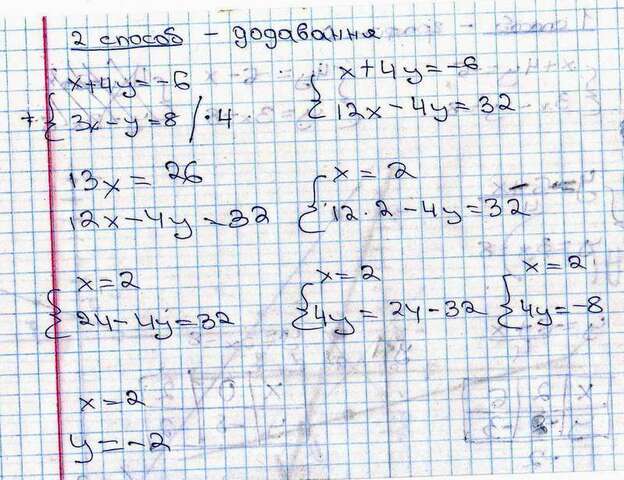 2 способ - додавання
+ { x+4y=-6
3x-y=8 /·4
{ x+4y=-6
12x-4y=32
13x=26
12x-4y=32
{ x=2
12·2-4y=32
{ x=2
24-4y=32
{ x=2
4y=24-32
{ x=2
4y=-8
x=2
y=-2